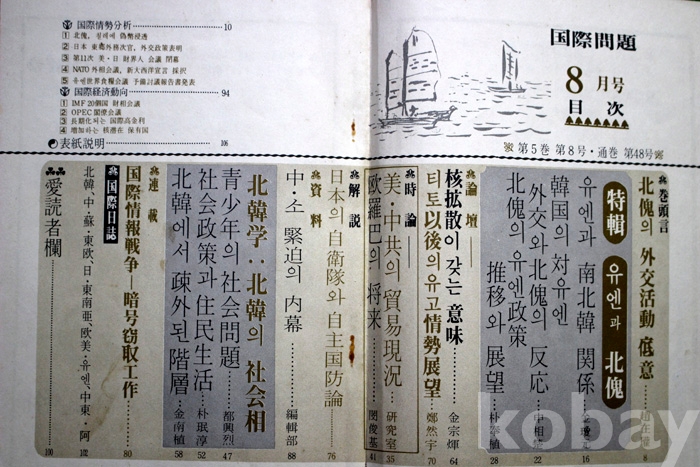 国際問題
8月号
目次
第5巻 第8号・通巻 第48号
国際情勢分析 10
① 北傀, 칠레에 偽幣浸透
② 日本 東郷外務次官, 外交政策表明
③ 第11次 美・日 財界人 会議 閉幕
④ NATO 外相会議, 新大西洋宣言 採択
⑤ 유엔世界食糧会議 予備討議報告書発表
国際経済動向 94
① IMF 20個国 財相会議
② OPEC 閣僚会議
③ 長期化되는 国際高金利
④ 増加하는 核潜在 保有国
表紙説明 106
巻頭言
北傀의 外交活動 底意 8
特輯 유엔과 北傀
유엔과 南北韓 関係 16
韓国의 対유엔
外交와 北傀의 反応 22
北傀의 유엔政策
推移와 展望 28
論壇
核拡散이 갖는 意味 金宗煇 64
티토以後의 유고情勢展望 鄭然宇 70
時論
美・中共의 貿易現況 研究室 35
欧羅巴의 将来 閔俊基 41
解説
日本의 自衛隊와 自主国防論 76
資料
中・소 緊迫의 内幕 編輯部 88
北韓学：北韓의 社会相
青少年의 社会問題 都興烈 47
社会政策과 住民生活 朴珉淳 52
北韓에서 疎外된 階層 金南植 58
連載
国際情報戦争―暗号窃取工作 80
国際日誌
北韓、中・蘇・東欧、日・東南亜、欧美・유엔、中東・阿 102
愛読者欄 100
kobay